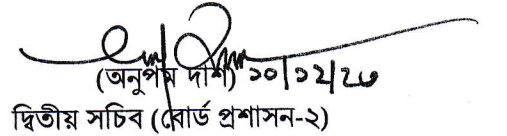 (অনুপম দাশ) ১০/১২/২৩
দ্বিতীয় সচিব (বোর্ড প্রশাসন-২)